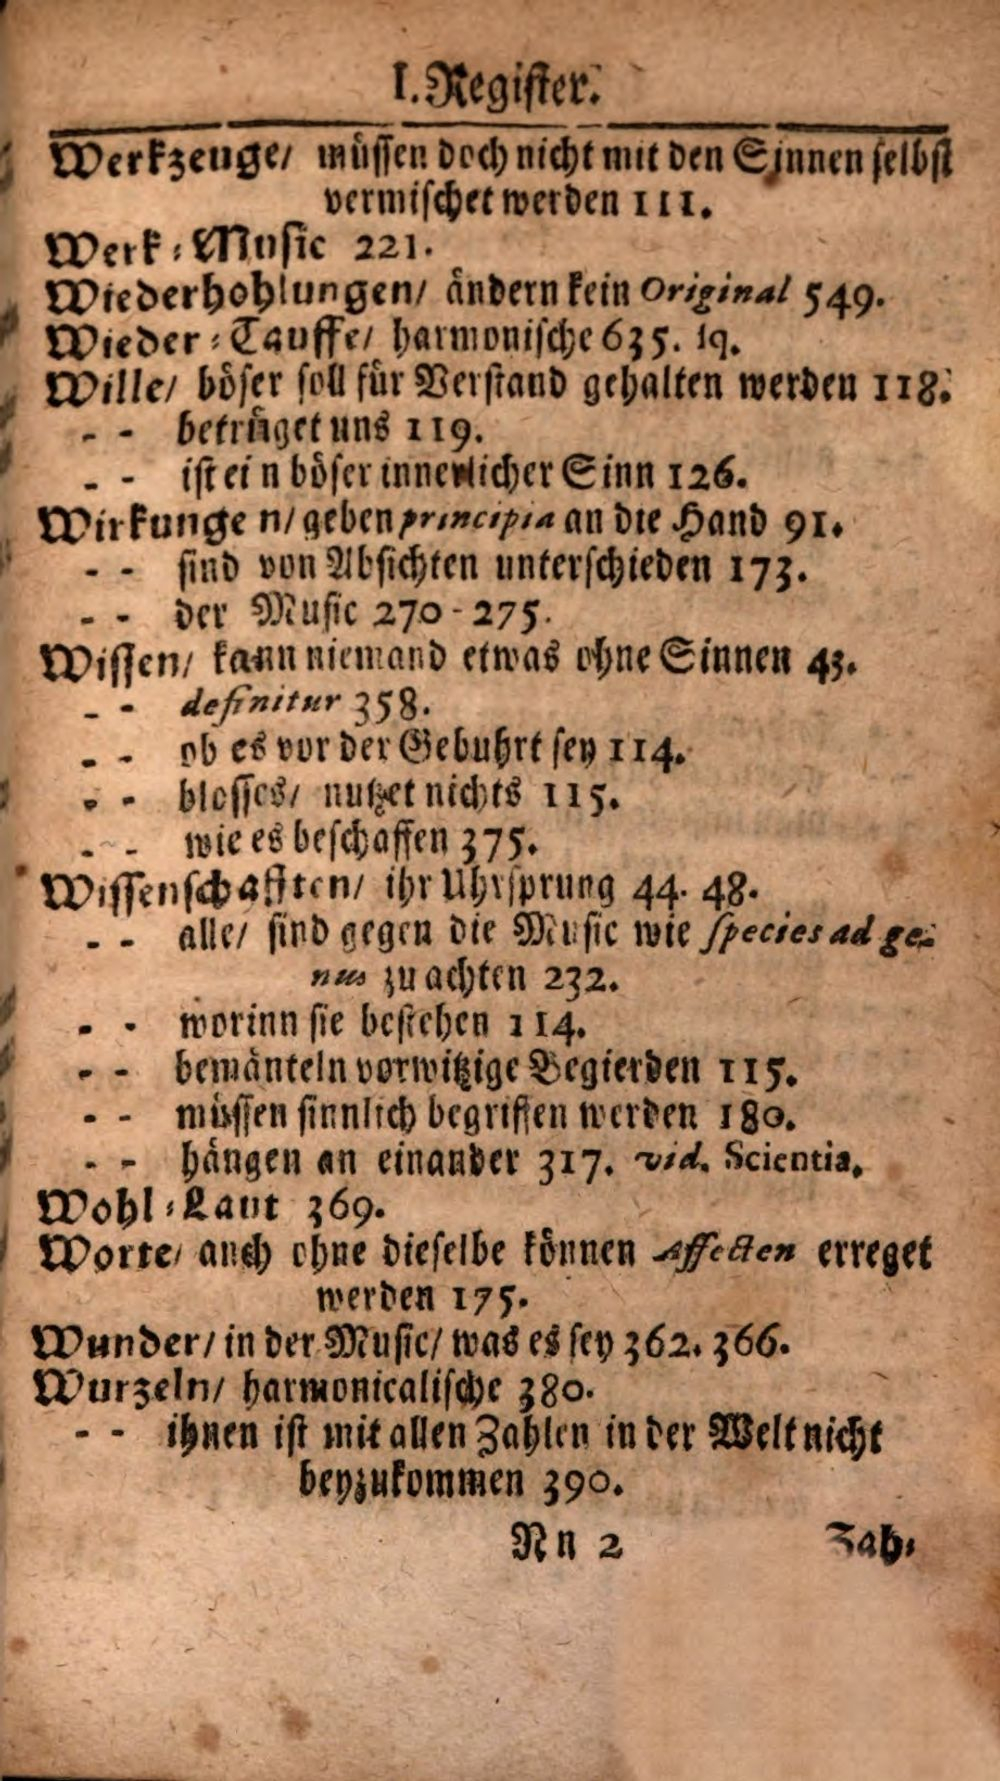 I. Register.
Werkzeuge/ müssen doch nicht mit den Sinnen selbst
vermischet werden 111.
Werk-Music 221.
Wiederhohlungen/ ändern kein Original 549.
Wieder-Tauffe/ harmonische 635. sq.
Wille/ böser soll für Verstand gehalten werden 118.
- - betrüget uns 119.
- - ist ei n böser innerlicher Sinn 126.
Wirkunge n/ geben principia an die Hand 91.
- - sind von Absichten unterschieden 173.
- - der Music 270-275.
Wissen/ kann niemand etwas ohne Sinnen 43.
- - definitur 358.
- - ob es vor der Gebuhrt sey 114.
- - blosses/ nutzet nichts 115.
- - wie es beschaffen 375.
Wissenschafften/ ihr Uhrsprung 44. 48.
- - alle/ sind gegen die Music wie species ad ge-
nus zu achten 232.
- - worinn sie bestehen 114.
- - bemänteln vorwitzige Begierden 115.
- - müssen sinnlich begriffen werden 180.
- - hängen an einander 317. vid. Scientia.
Wohl-Laut 369.
Worte/ auch ohne dieselbe können Affecten erreget
werden 175.
Wunder/ in der Music/ was es sey 362. 366.
Wurzeln/ harmonicalische 380.
- - ihnen ist mit allen Zahlen in der Welt nicht
beyzukommen 390.
Nn 2 Zah-